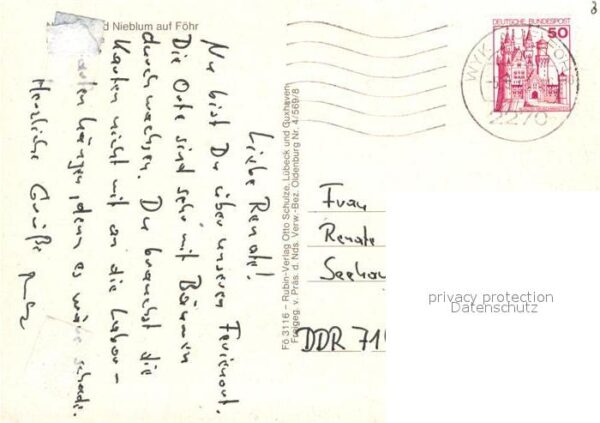 d Nieblum auf Föhr
Liebe Renate!
Nu bist Du über unseren Ferienort.
Die Orte sind sehr mit Bäumen
durchwachsen. Du brauchst die
Karten nicht mit an die Labor-
kasten hängen, denn es wäre schade.
Herzliche Grüße
Fö 3116 – Rubin-Verlag Otto Schulze, Lübeck und Cuxhaven
Freigeg. v. Präs. d. Nds. Verw.-Bez. Oldenburg Nr. 4/569/8
DEUTSCHE BUNDESPOST
50
WYK
FÖHR
2270
Frau
Renate
Seehau
DDR 719
privacy protection
Datenschutz